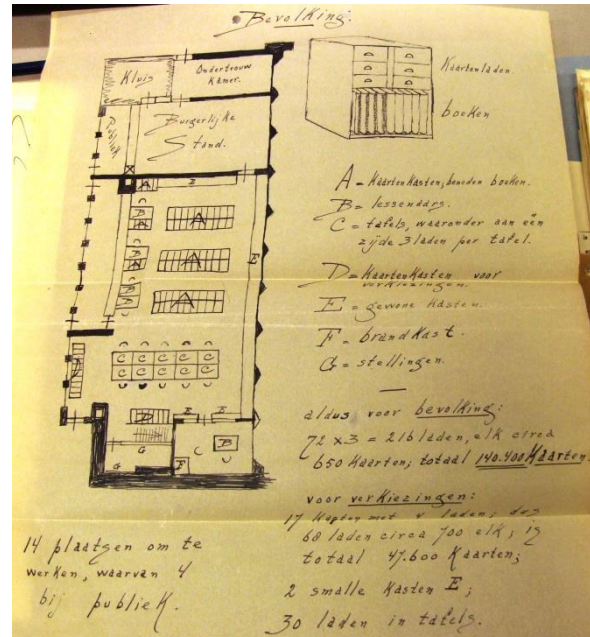 Bevolking.
Kluis
Ondertrouw
Kamer.
Publiek
Burgerlijke
Stand.
Kaartenladen.
boeken
A = Kaartenkasten, beneden boeken.
B = lessenaars.
C = tafels, waaronder aan één
zijde 3 laden per tafel.
D = Kaartenkasten voor
verkiezingen.
E = gewone kasten.
F = brandkast.
G = stellingen.
A
E
B
A
B
A
E
B
A
C C C C C
C C C C C
D
D
E
E
G
C
B
G
F
aldus voor bevolking:
72 x 3 = 216 laden, elk circa
650 Kaarten; totaal 140.400 Kaarten.
voor verkiezingen:
17 kasten met 4 laden; dus
68 laden circa 700 elk; is
totaal 47.600 Kaarten;
2 smalle Kasten E;
30 laden in tafels.
14 plaatsen om te
werken, waarvan 4
bij publiek.